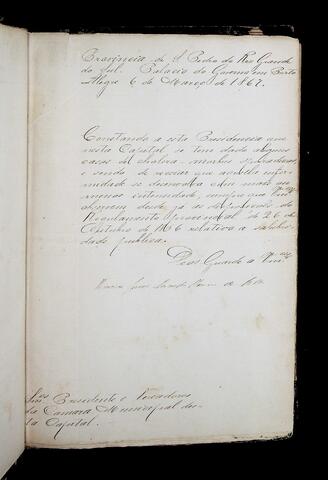 Provincia de S. Pedro do Rio Grande
do Sul. Palacio do Governo em Porto
Alegre 6 de Março de 1867.
Constando a esta Presidencia que
nesta Capital se tem dado alguns
casos de cholera-morbus
e sendo de receiar que aquella enfer-
midade se desenvolva com mais ou
menos intensidade, cumpre que
desde já as disposições do
Regulamento Provincial de 26 de
Outubro de relativo a salubri-
dade publica.
Deos Guarde a Vmces
Snres Presidente e Vereadores
da Camara Municipal des-
ta Capital.